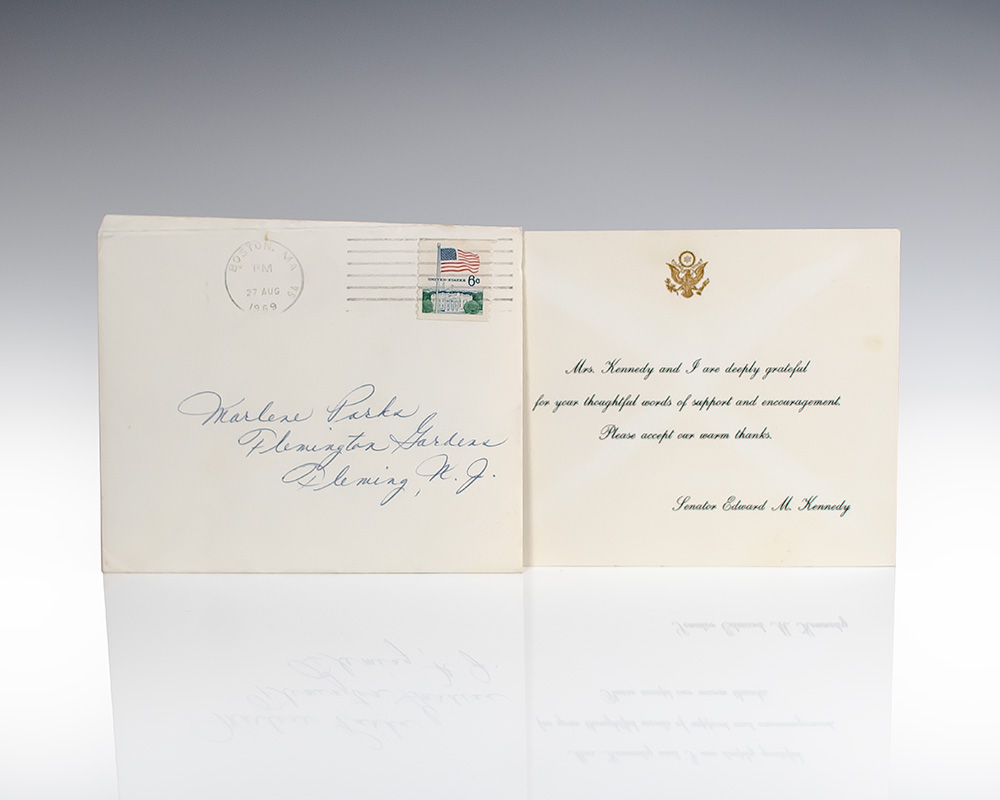 BOSTON, MA
PM
27 AUG
1969
UNITED STATES 6c
Marlene Parks
Flemington Gardens
Fleming, N.J.
Mrs. Kennedy and I are deeply grateful
for your thoughtful words of support and encouragement.
Please accept our warm thanks.
Senator Edward M. Kennedy